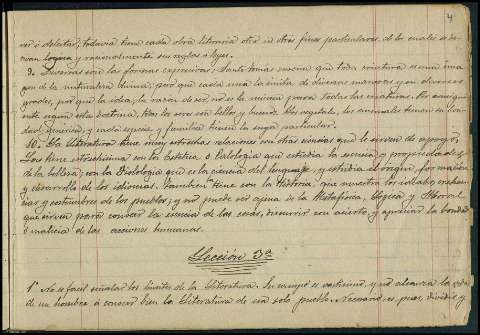 4
ver ó deleitar, todavía tiene cada obra literaria otro ú otros fines particulares, de los cuales se derivan lógica y racionalmente sus reglas ó leyes.
9. Diversas son las formas expresivas; Santo Tomás enseña que toda criatura es una imagen de la naturaleza divina, por que cada una la imita de diversas maneras y en diversos
grados, por que la idea, la razon de ser, no es la misma para todas las criaturas. Por consiguiente segun esta doctrina, todos los seres son bellos y buenos. Los vegetales, los animales tienen su bondad generica, y cada especie y familia tienen la suya particular.
10. La Literatura tiene muy estrechas relaciones con otras ciencias que le sirven de apoyo.
Las tiene estrechisima con la Estética ó Calología que estudia la esencia y propiedades
de la belleza; con la Filología que es la ciencia del lenguaje, y estudia el origen, formacion
y desarrollo de los idiomas. Tambien las tiene con la Historia, que muestra los idiomas, creencias y costumbres de los pueblos; y no puede ser ajena de la Metafísica, Lógica y Moral
que sirven para conocer la esencia de las cosas, discurrir con acierto, y apreciar la bondad
ó malicia de las acciones humanas.
Leccion 3ª
1ª No es facil señalar los limites de la Literatura. Su campo es vastisimo, y no alcanza la vida
de un hombre á conocer bien la Literatura de un solo pueblo. Necesario es, pues, dividir y